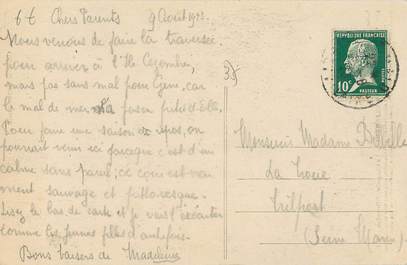 6 h Chers Parents 9 Août 192
Nous venons de faire la traversée
pour arriver à l'île Cezembre,
mais pas sans mal pour Gene, car
le mal de mer
Pour faire une saison de repos, on
pourrait venir ici parceque c'est d'un
calme sans pareil, ce coin est vrai
ment sauvage et pittoresque.
Lisez le bas de carte et je vais
comme les jeunes filles d'autrefois.
Bons baisers de Madeleine
35
REPUBLIQUE FRANÇAISE
10c
PASTEUR
POSTES
Monsieur Madame
La Loue
Trilport
(Seine Marne)